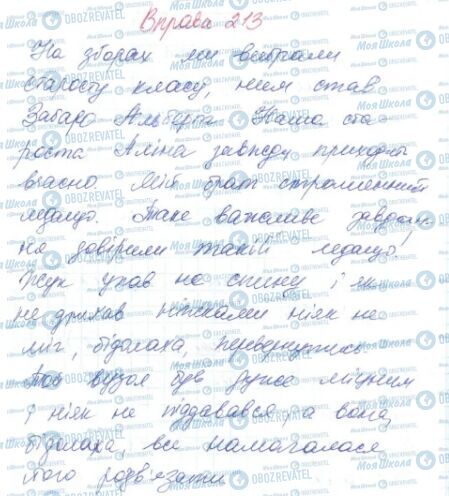 Вправа 213
На зборах ми вибрали
старосту класу, ним став
Забара Альберт. Наша ста-
роста Аліна завжди приходить
вчасно. Мій брат страшенний
ледащо. Таке важливе завдання
не довірили такій ледащо!
Жук упав на спину і як
не дригав ніжками ніяк не
міг, бідолаха, перевернутись.
Той вузол був дуже міцним
і ніяк не піддавався, а вона,
бідолаха, все намагалася
його розв'язати